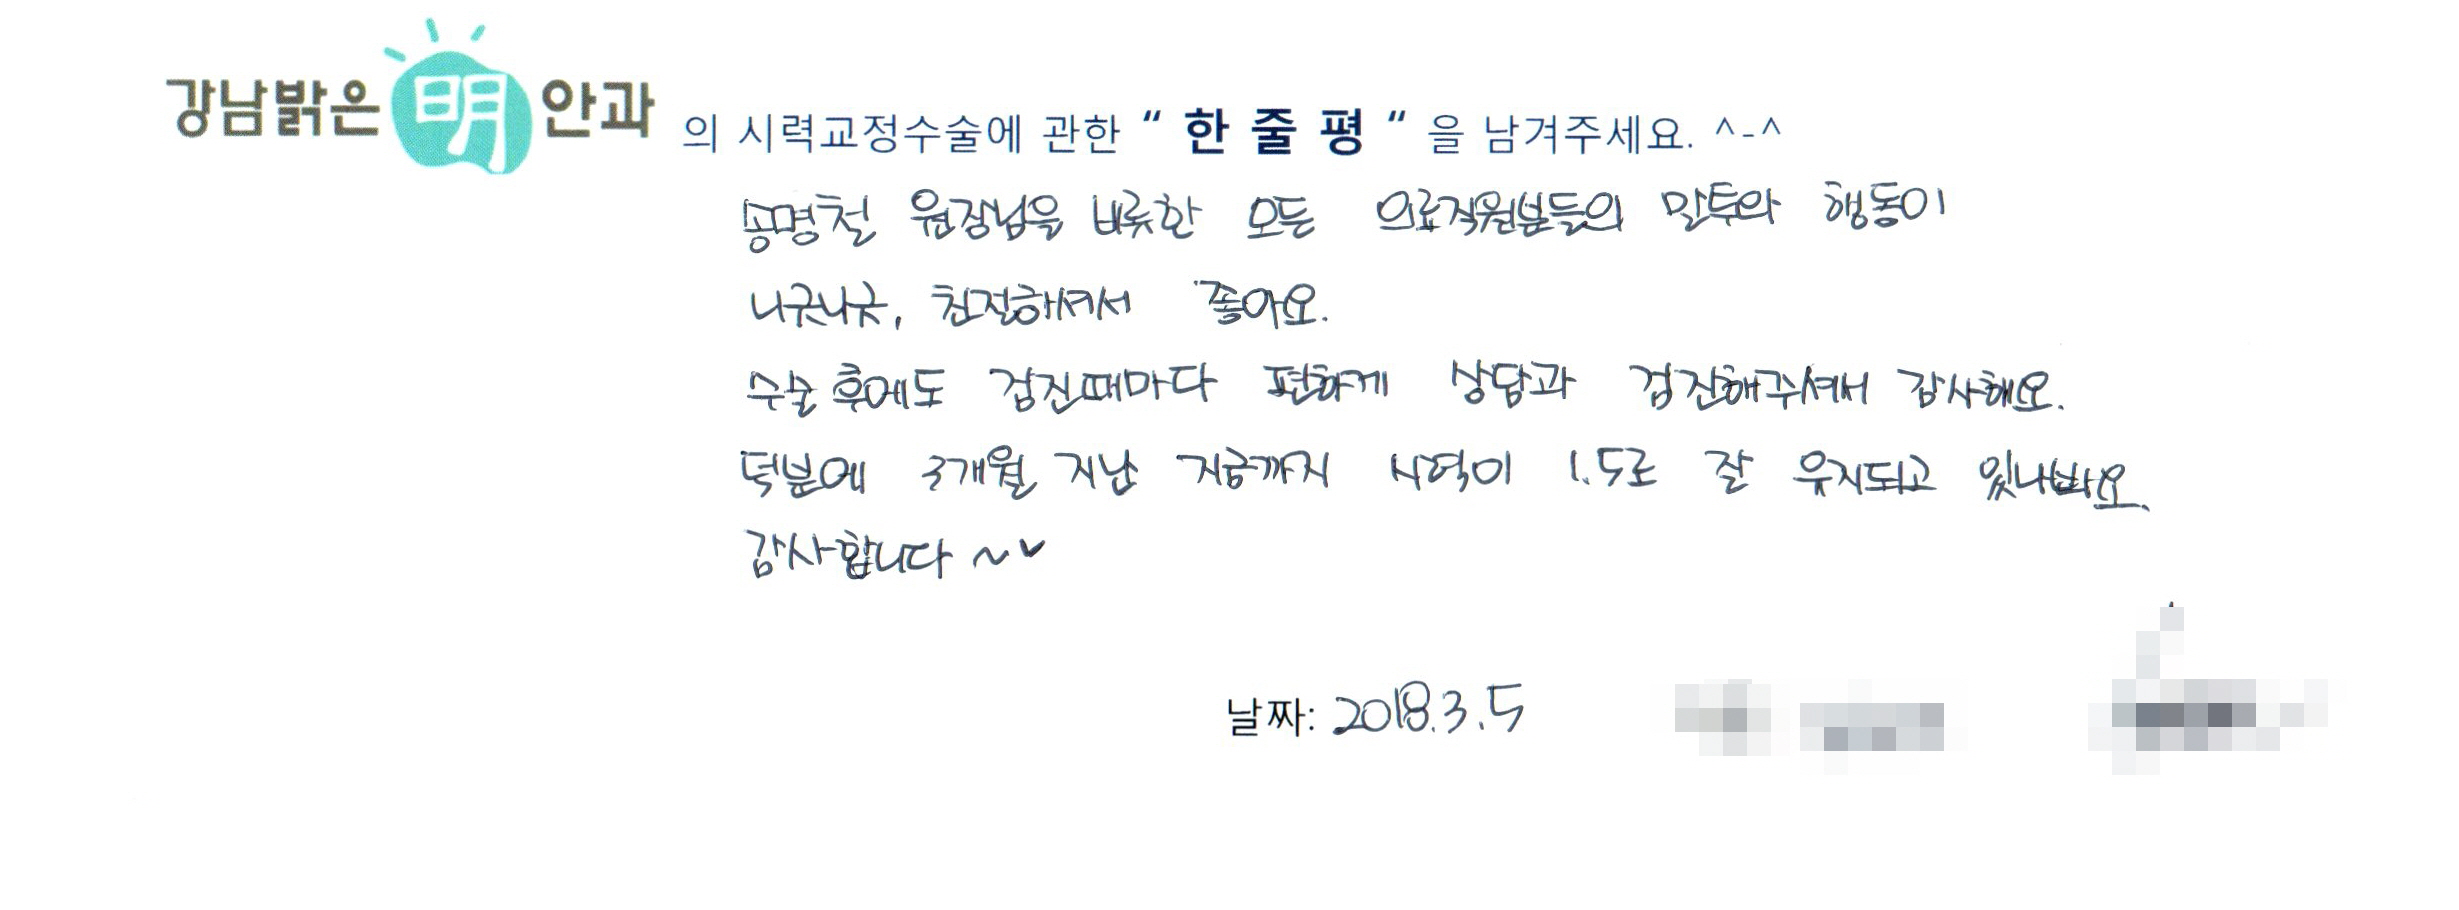 강남밝은 明 안과 의 시력교정수술에 관한 “ 한 줄 평 “ 을 남겨주세요. ^-^
송명철 원장님을 비롯한 모든 의료직원분들의 말투와 행동이
나긋나긋, 친절하셔서 좋아요.
수술 후에도 검진때마다 편하게 상담과 검진해주셔서 감사해요.
덕분에 3개월 지난 지금까지 시력이 1.5로 잘 유지되고 있나봐요.
감사합니다 ~♥
날짜: 2018.3.5